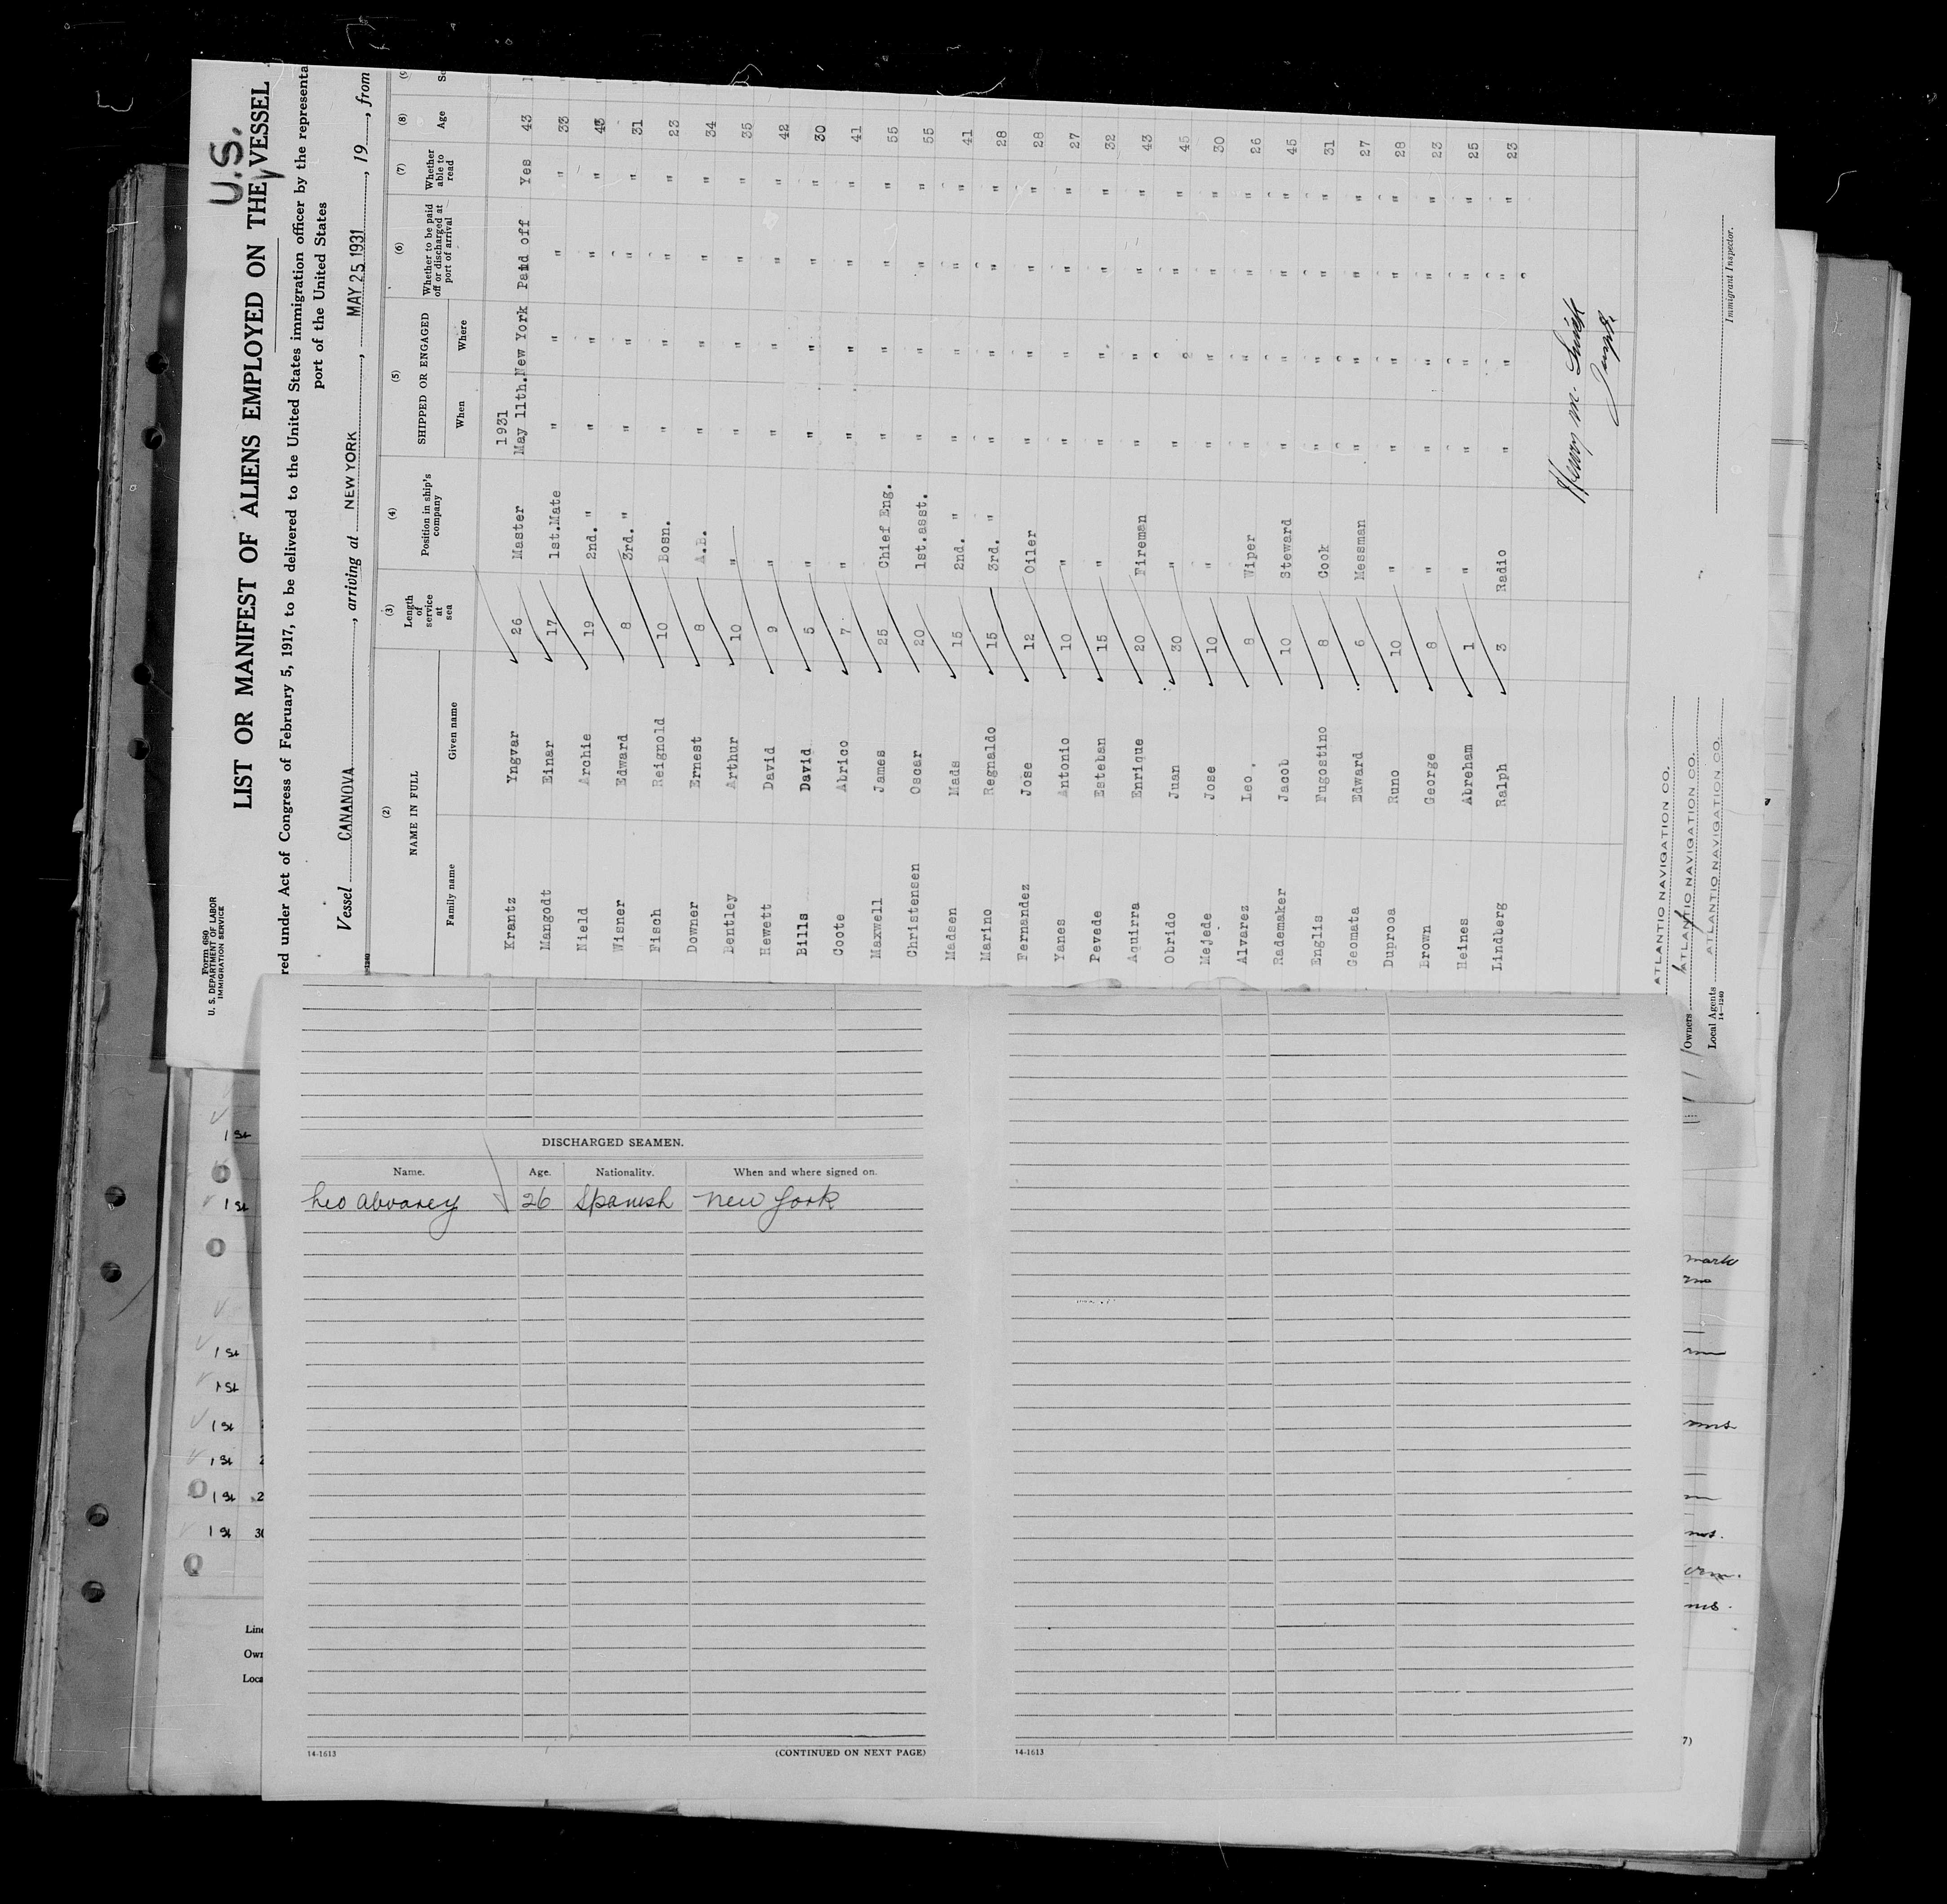 U.S.
Form 680
U. S. DEPARTMENT OF LABOR
IMMIGRATION SERVICE
LIST OR MANIFEST OF ALIENS EMPLOYED ON THE VESSEL
red under Act of Congress of February 5, 1917, to be delivered to the United States immigration officer by the representa
port of the United States
Vessel CANANOVA, arriving at NEW YORK, MAY 25 1931, 19, from
(2) (3) (4) (5) (6) (7) (8)
NAME IN FULL Length of service at sea Position in ship's company SHIPPED OR ENGAGED Whether to be paid off or discharged at port of arrival Whether able to read Age
Family name Given name When Where
1931
Krantz Yngvar 26 Master May 11th. New York Paid off Yes 43
Mangodt Einar 17 1st.Mate " " " " 33
Nield Archie 19 2nd. " " " " "
Wisner Edward 8 3rd. " " " " " 31
Fisch Reignold 10 Bosn. " " " " 23
Downer Ernest 8 A.B. " " " " 34
Bentley Arthur 10 " " " " " 35
Hewett David 9 " " " " " 42
Bills David 5 " " " " " 30
Coote Abrico 7 " " " " " 41
Maxwell James 25 Chief Eng. " " " " 55
Christensen Oscar 20 1st.asst. " " " " 55
Madsen Mads 15 2nd. " " " " " 41
Marino Regnaldo 15 3rd. " " " " " 28
Fernandez Jose 12 Oiler " " " " 28
Yanes Antonio 10 " " " " " 27
Pevede Esteban 15 " " " " " 32
Aquirra Enrique 20 Fireman " " " " 43
Obrido Juan 30 " " " " " 45
Mejede Jose 10 " " " " " 30
Alvarez Leo. 8 Wiper " " " " 26
Rademaker Jacob 10 Steward " " " " 45
Englis Fugostino 8 Cook " " " " 31
Geomata Edward 6 Messman " " " " 27
Duproa Runo 10 " " " " " 28
Brown George 8 " " " " " 23
Heines Abreham 1 " " " " " 25
Lindberg Ralph 3 Radio " " " " 23
Henry M.
ATLANTIC NAVIGATION CO.
Owners ATLANTIC NAVIGATION CO.
Local Agents ATLANTIC NAVIGATION CO.
14-1240
Immigrant Inspector.
DISCHARGED SEAMEN.
Name. Age. Nationality. When and where signed on.
Leo Alvarez 26 Spanish New York
14-1613 (CONTINUED ON NEXT PAGE)
14-1613
1 St
1 St
1 St
1 St
1 St
1 St
1 St
1 St 30
Line
Own
Loca